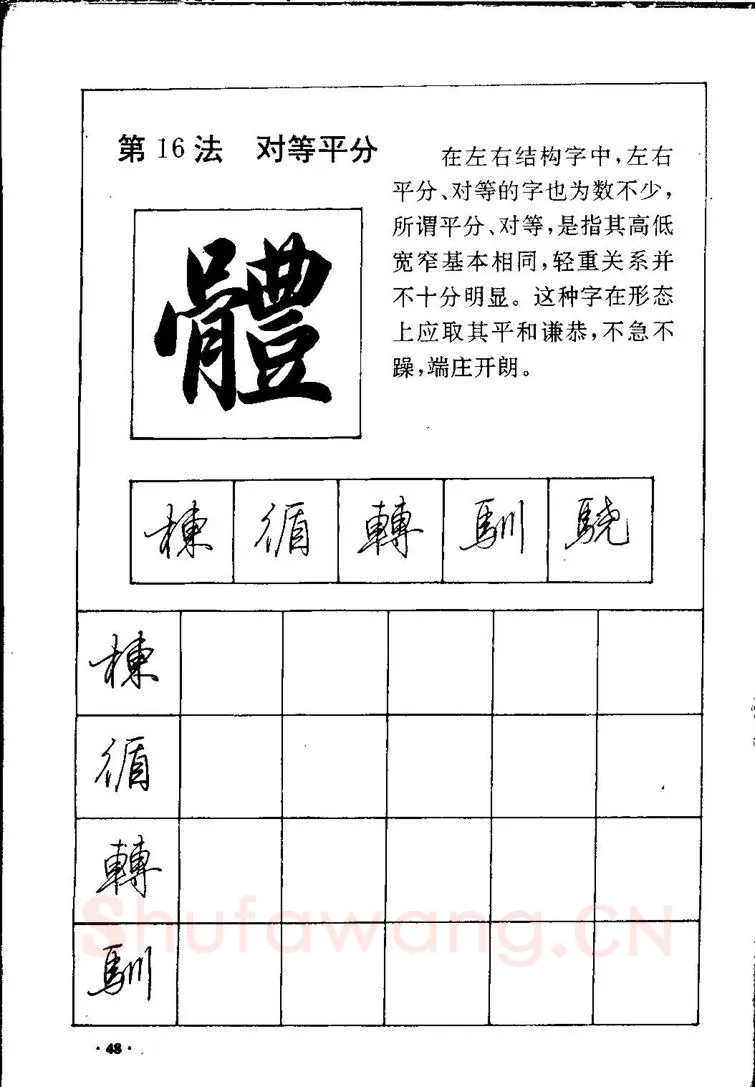 第16法 对等平分
在左右结构字中,左右
平分、对等的字也为数不少,
所谓平分、对等,是指其高低
宽窄基本相同,轻重关系并
不十分明显。这种字在形态
上应取其平和谦恭,不急不
躁,端庄开朗。
體
棟 循 轉 馴 驍
棟
循
轉
馴
Shufawang.CN
·48·